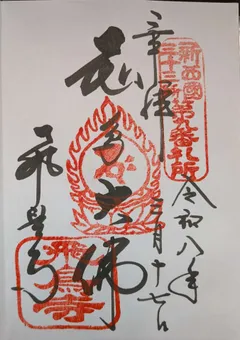 新西國
三十三所
第九番札所
奉拝
令和八年
三月十七日
丈六佛
飛鳥寺
飛鳥寺